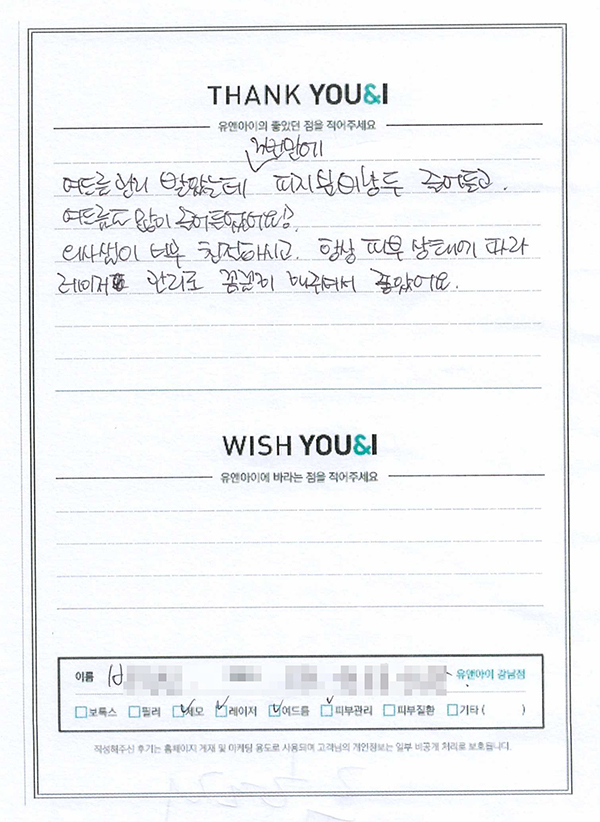 THANK YOU&I
유앤아이의 좋았던 점을 적어주세요
3번만에
여드름 관리 받았는데 피지 분비량도 줄어들고.
여드름도 많이 줄어들었어요!
의사쌤이 너무 친절하시고. 항상 피부 상태에 따라
레이저 관리도 꼼꼼히 해주셔서 좋았어요.
WISH YOU&I
유앤아이에 바라는 점을 적어주세요
이름 유앤아이 강남점
보톡스 필러 제모 레이저 여드름 피부관리 피부질환 기타 ( )
작성해주신 후기는 홈페이지 게재 및 마케팅 용도로 사용되며 고객님의 개인정보는 일부 비공개 처리로 보호됩니다.